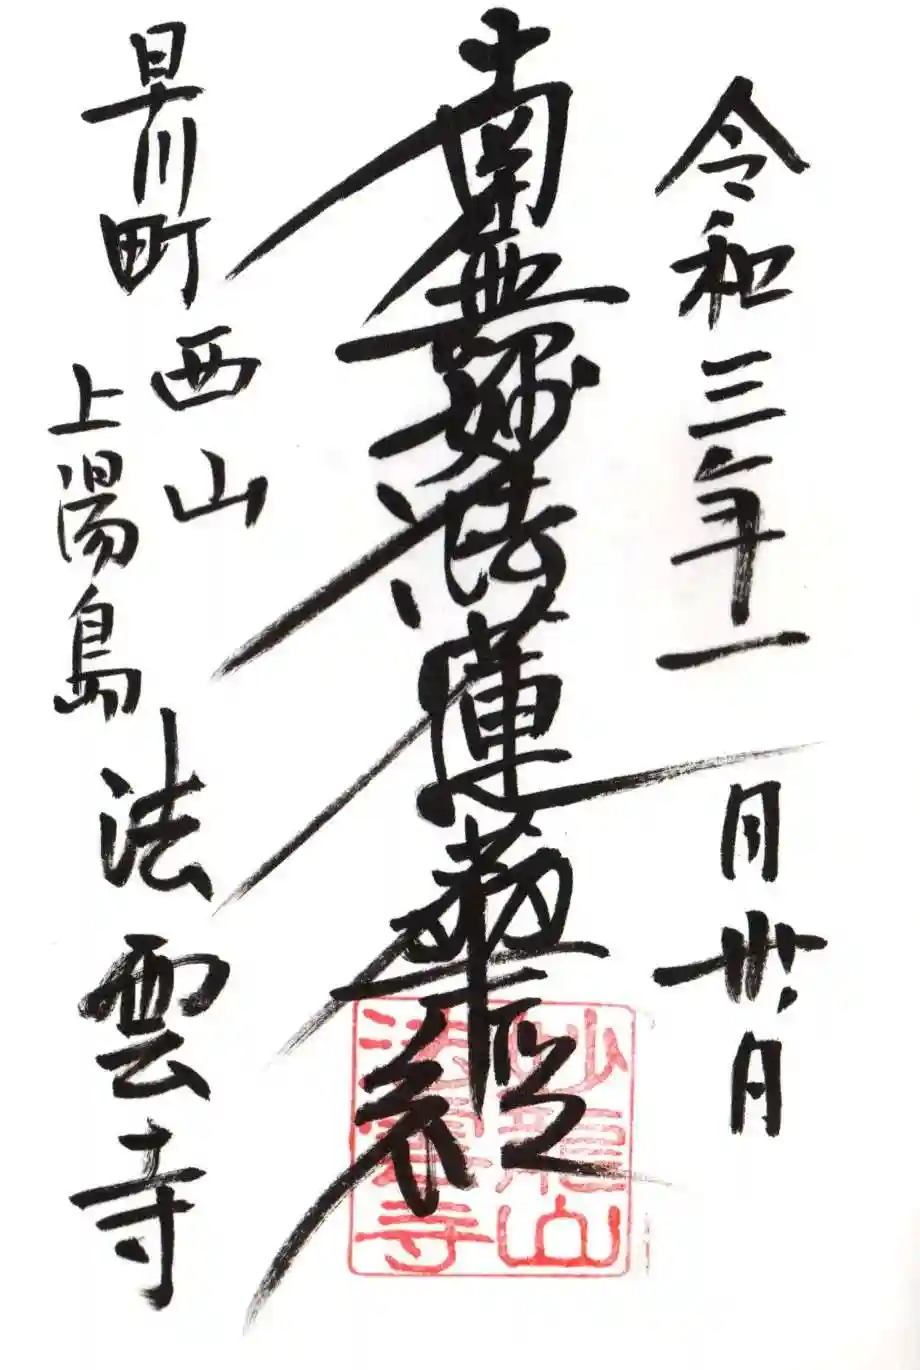 令和三年十一月卅日
南無妙法蓮華経
早川町
西山
上湯島
法雲寺
妙龍山
法雲寺